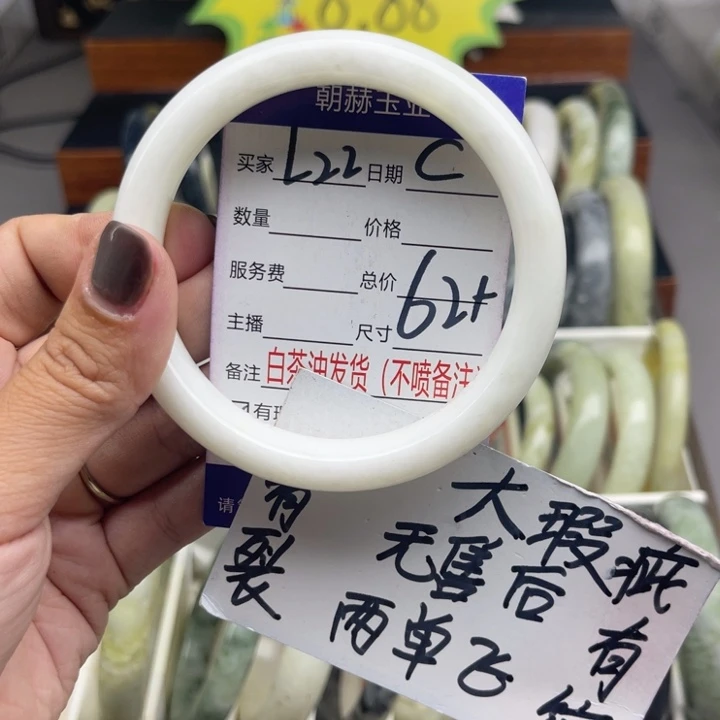 8.88
朝赫玉业
买家 L22 日期 C
数量 价格
服务费 总价
主播 尺寸 62+
备注 白茶油发货(不喷备注)
有瑕
请
有裂
大瑕疵
无售后 有
两单飞